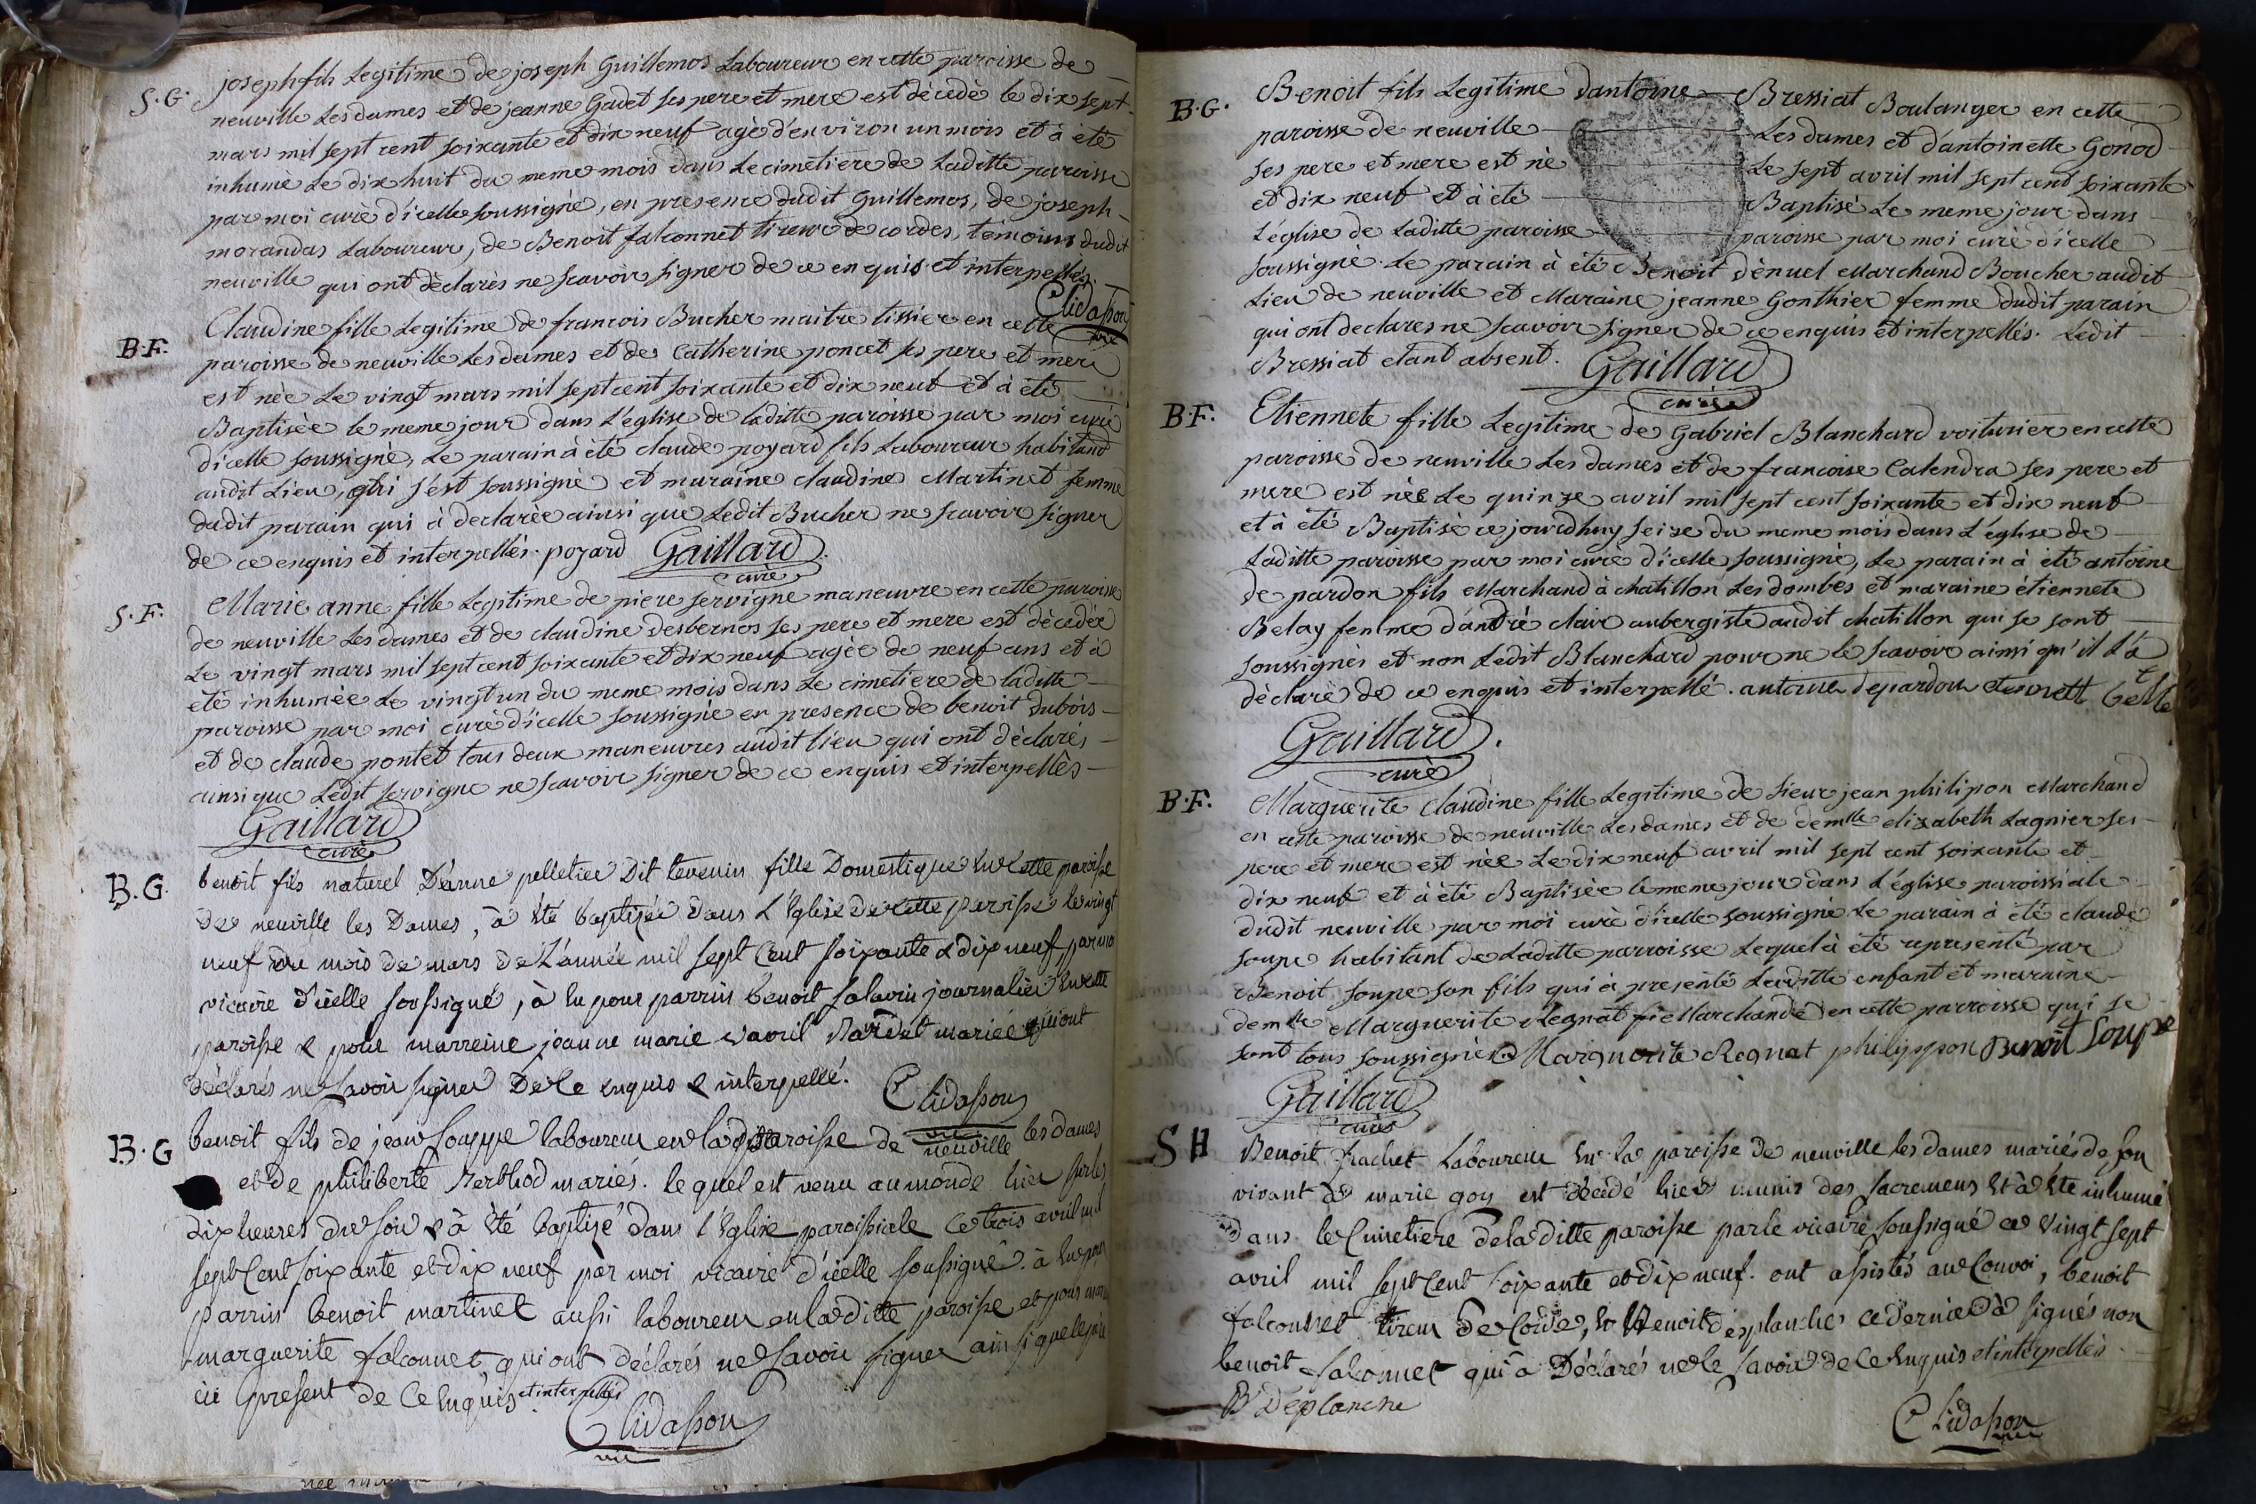 S.G. joseph fils Legitime de joseph Guillemos Laboureur en cette paroisse de
neuville Les dames et de jeanne Gadet ses pere et mere est dècedè le dix sept
mars mil sept cent soixante et dix neuf agè d'environ un mois et à etè
inhumè Le dix huit du meme mois dans Le cimetiere de Laditte paroisse
par moi curè d'icelle soussignè, en presence dudit Guillemos, de joseph
morandas Laboureur, de Benoit falconnet tireur de cordes, tèmoins dudit
neuville qui ont dèclarès ne scavoir signer de ce enquis et interpellès.
Clidasson
vic
B.F. Claudine fille Legitime de francois Bucher maitre tissier en cette
paroisse de neuville Les dames et de Catherine poncet ses pere et mere
est nèe Le vingt mars mil sept cent soixante et dix neuf et à étè
Baptisèe le meme jour dans L'église de laditte paroisse par moi curè
dicelle soussignè, Le parain à été claude poyard fils Laboureur habitand
audit Lieu, qui s'est soussignè et maraine claudine Martinet femme
dudit parain qui à declarèe ainsi que Ledit Bucher ne scavoir signer
de ce enquis et interpellès. poyard Gaillard
curè
S.F. Marie anne fille Legitime de piere servigne maneuvre en cette paroisse
de neuville Les dames et de claudine desbernos ses pere et mere est dècedèe
Le vingt mars mil sept cent soixante et dix neuf agèe de neuf ans et à
etè inhumèe Le vingt un du meme mois dans Le cimetiere de laditte
paroisse par moi curè d'icelle soussignè en presence de benoit dubois
et de claude pontet tous deux maneuvres audit lieu qui ont dèclarès
ainsi que Ledit servigne ne scavoir signer de ce enquis et interpellès
Gaillard
curè
B.G. benoit fils naturel D'anne pelletier Dit tevenin fille Domestique en cette paroisse
de neuville les Dames, à été baptisée dans l'Eglise de cette paroisse le vingt
neuf du mois de mars de L'année mil sept Cent soixante & dix neuf, par moi
vicaire d'icelle soussigné, à eu pour parrin benoit salavin journalier en cette
paroisse & pour marreine jeanne marie avril mariée qui ont
déclarés ne savoir signer De Ce enquis & interpellé.
Clidasson
vic
B.G benoit fils de jean souppe laboureur en laditte paroisse de neuville les dames
et de philiberte mariés. lequel est venu au monde hier sur les
dix heures du soir & à été baptizé dans l'Eglise paroissiale ce trois avril mil
sept Cent soixante et dix neuf par moi vicaire d'icelle soussigné. à eu pour
parrin benoit martinet aussi laboureur en laditte paroisse et pour
marguerite falconnet qui ont déclarés ne savoir signer ainsi que le père
ici present de Ce enquis et interpellés
Clidasson
vic
B.G. Benoit fils Legitime dantoine Bressiat Boulanger en cette
paroisse de neuville Les dames et d'antoinette Gonod
ses pere et mere est nè Le sept avril mil sept cent soixante
et dix neuf et à étè Baptisè Le meme jour dans
L'église de Laditte paroisse paroisse par moi curè d'icelle
soussignè. Le parain à étè Benoit dènuel Marchand Boucher audit
Lieu de neuville et Maraine jeanne Gonthier femme dudit parain
qui ont declares ne scavoir signer de ce enquis et interpellés. Ledit
Bressiat etant absent. Gaillard
curè
B.F. Etiennete fille Legitime de Gabriel Blanchard voiturier en cette
paroisse de neuville Les dames et de francoise Calendra ses pere et
mere est nèe Le quinze avril mil sept cent soixante et dix neuf
et à étè Baptisè ce jourdhuy seize du meme mois dans L'église de
Laditte paroisse par moi curè d'icelle soussignè, Le parain à étè antoine
de pardon fils Marchand à chatillon Les dombes et maraine étiennete
Belay femme d'andrè clair aubergiste audit chatillon qui se sont
soussignès et non Ledit Blanchard pour ne le scavoir ainsi qu'il L'a
dèclarè de ce enquis et interpellé. antoine depardon
Gaillard
curè
B.F. Marguerite Claudine fille Legitime de sieur jean philipon Marchand
en cette paroisse de neuville Les dames et de demlle elizabeth Lagnier ses
pere et mere est nèe Le dix neuf avril mil sept cent soixante et
dix neuf et à été Baptisèe le meme jour dans L'église paroissiale
dudit neuville par moi curè d'icelle soussignè Le parain à été claude
soupe habitant de Laditte parroisse Lequel à été representé par
Benoit soupe son fils qui à presentè Laditte enfant et maraine
demlle Marguerite Regnat Marchande en cette parroisse qui se
sont tous soussignès. Marguerite Regnat philippon Benoit Soupe
Gaillard
curè
S H Benoit frachet Laboureur en la paroisse de neuville les dames mariés de son
vivant à marie goy est décédé hier munir des sacremens & à été inhumé
dans le Cimetiere de laditte paroisse par le vicaire soussigné ce vingt sept
avril mil sept Cent soixante et dix neuf. ont assistés au Convoi, benoit
falconnet tireur de Corde, & Benoit desplanches ce dernier à signés non
benoit falconnet qui à Déclarés ne le savoir de Ce enquis et interpellés.
B Deplanche
Clidasson
vic